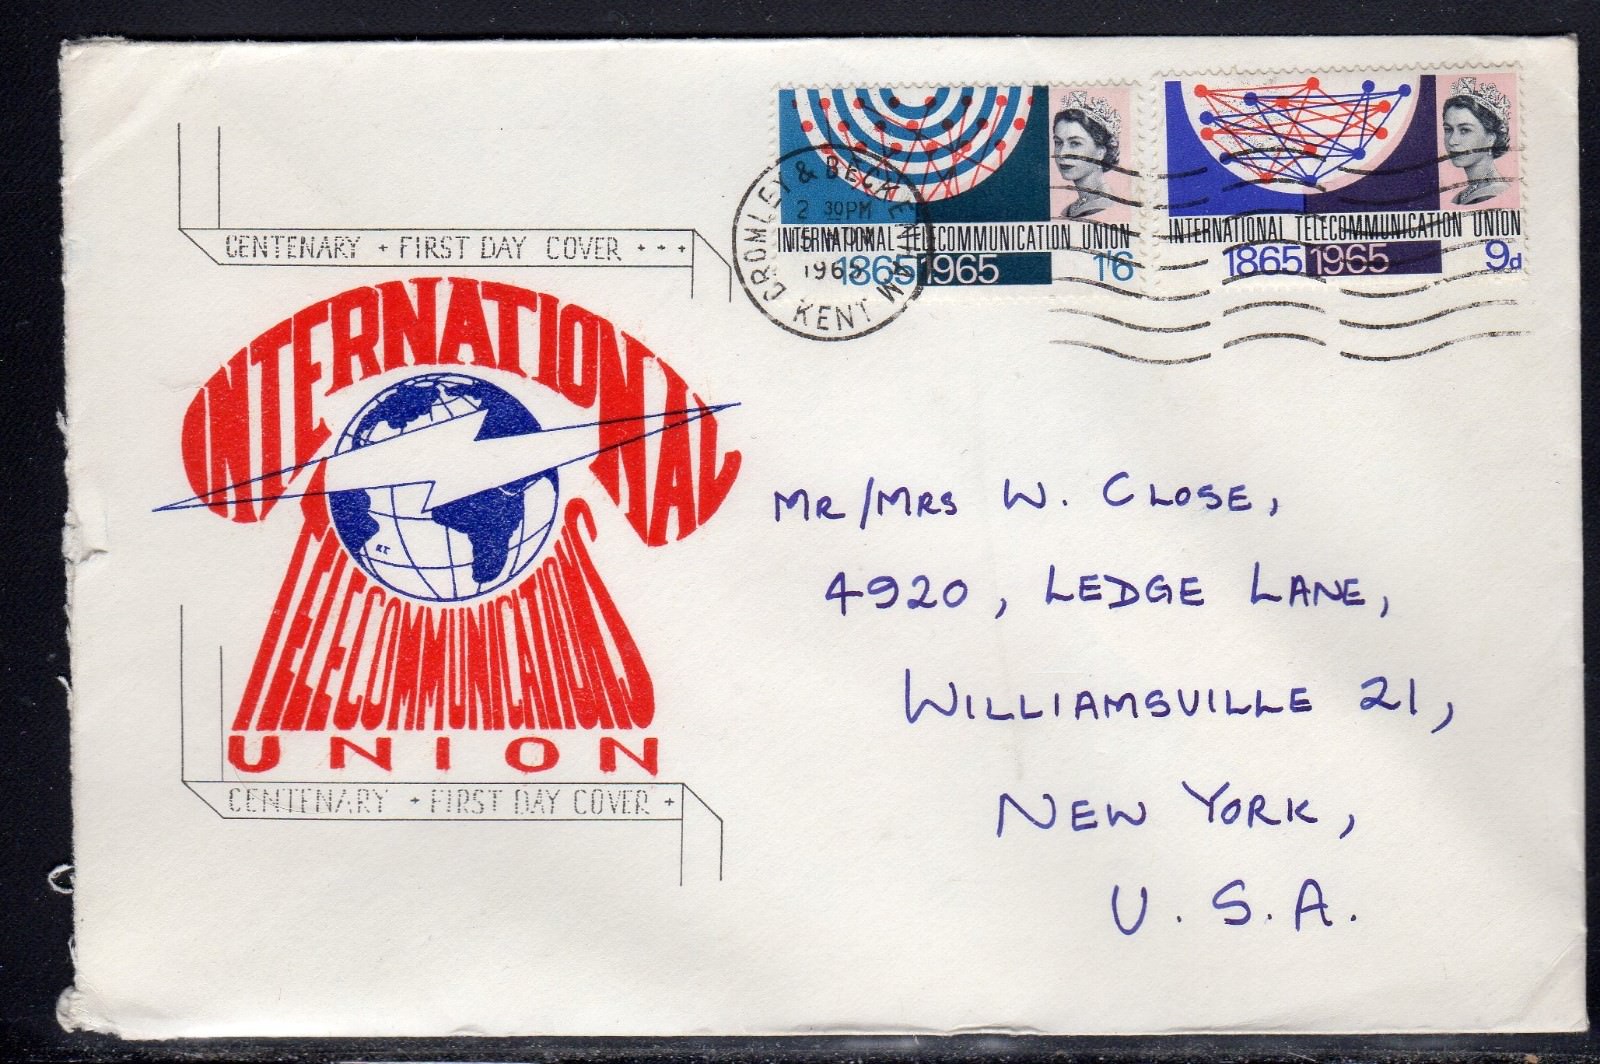 INTERNATIONAL TELECOMMUNICATION UNION
1865 1965 1'6
INTERNATIONAL TELECOMMUNICATION UNION
1865 1965 9d
BROMLEY & BECKENHAM
2 30PM
1965
KENT
CENTENARY + FIRST DAY COVER + + +
INTERNATIONAL
TELECOMMUNICATIONS
UNION
CENTENARY + FIRST DAY COVER +
MR/MRS W. CLOSE,
4920, LEDGE LANE,
WILLIAMSVILLE 21,
NEW YORK,
U.S.A.